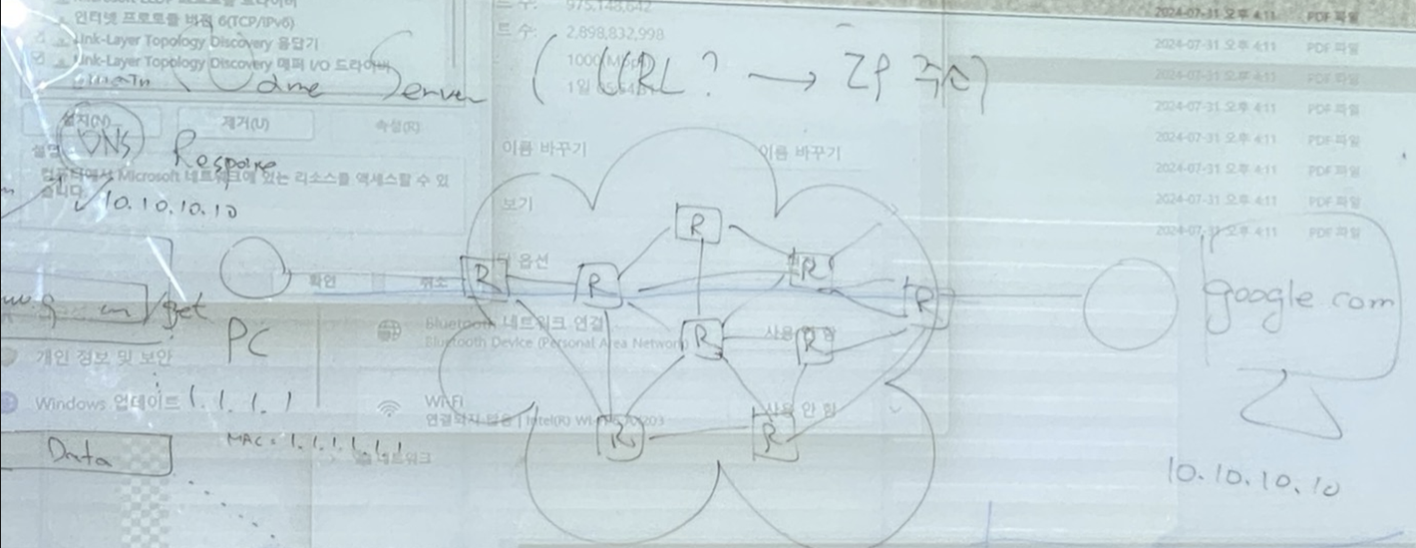 인터넷 프로토콜 버전 6(TCP/IPv6)
Link-Layer Topology Discovery 응답기
Link-Layer Topology Discovery 매퍼 I/O 드라이버
트 수:
2,898,832,998
Server
( URL? → IP 주소)
2024-07-31 오후 4:11 PDF 파일
2024-07-31 오후 4:11 PDF 파일
2024-07-31 오후 4:11 PDF 파일
2024-07-31 오후 4:11 PDF 파일
2024-07-31 오후 4:11 PDF 파일
2024-07-31 오후 4:11 PDF 파일
2024-07-31 오후 4:11 PDF 파일
2024-07-31 오후 4:11 PDF 파일
설치(N)
제거(U)
속성(R)
DNS Response
컴퓨터에서 Microsoft 네트워크에 있는 리소스를 액세스할 수 있
습니다.
10.10.10.10
이름 바꾸기
이름 바꾸기
보기
옵션
확인
취소
R
R
R
R
R
R
R
R
R
google.com
10.10.10.10
/get
PC
1.1.1.1
MAC = 1.1.1.1.1.1
Data
개인 정보 및 보안
Windows 업데이트
Bluetooth 네트워크 연결
Bluetooth Device (Personal Area Network)
사용 안 함
Wi-Fi
연결되지 않음
사용 안 함
네트워크